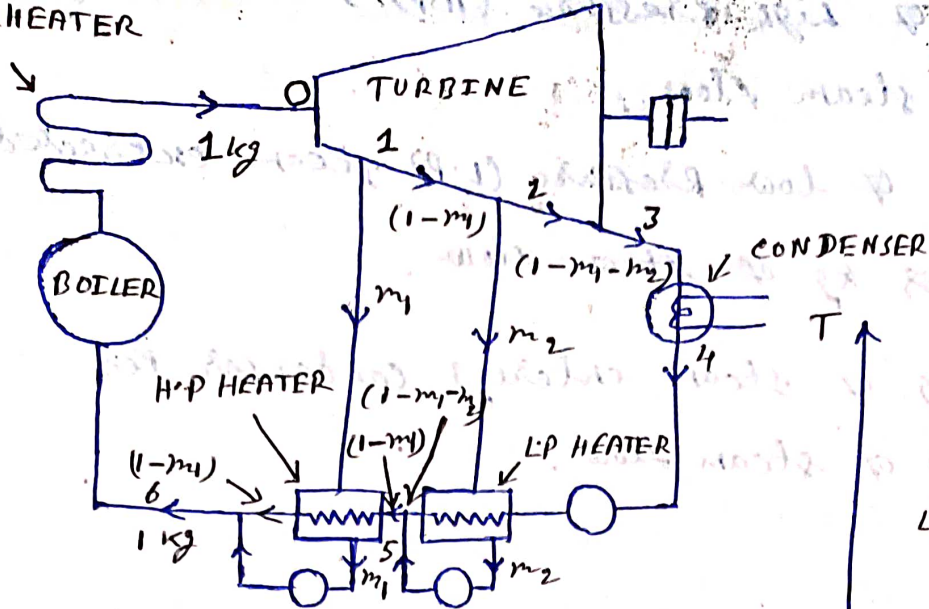 HEATER
O
TURBINE
1 kg
1
(1-m1)
2
3
(1-m1-m2)
CONDENSER
BOILER
m1
m2
4
T
H.P HEATER
(1-m1-m2)
(1-m1)
L.P HEATER
(1-m1)
6
1 kg
5
m1
m2
L